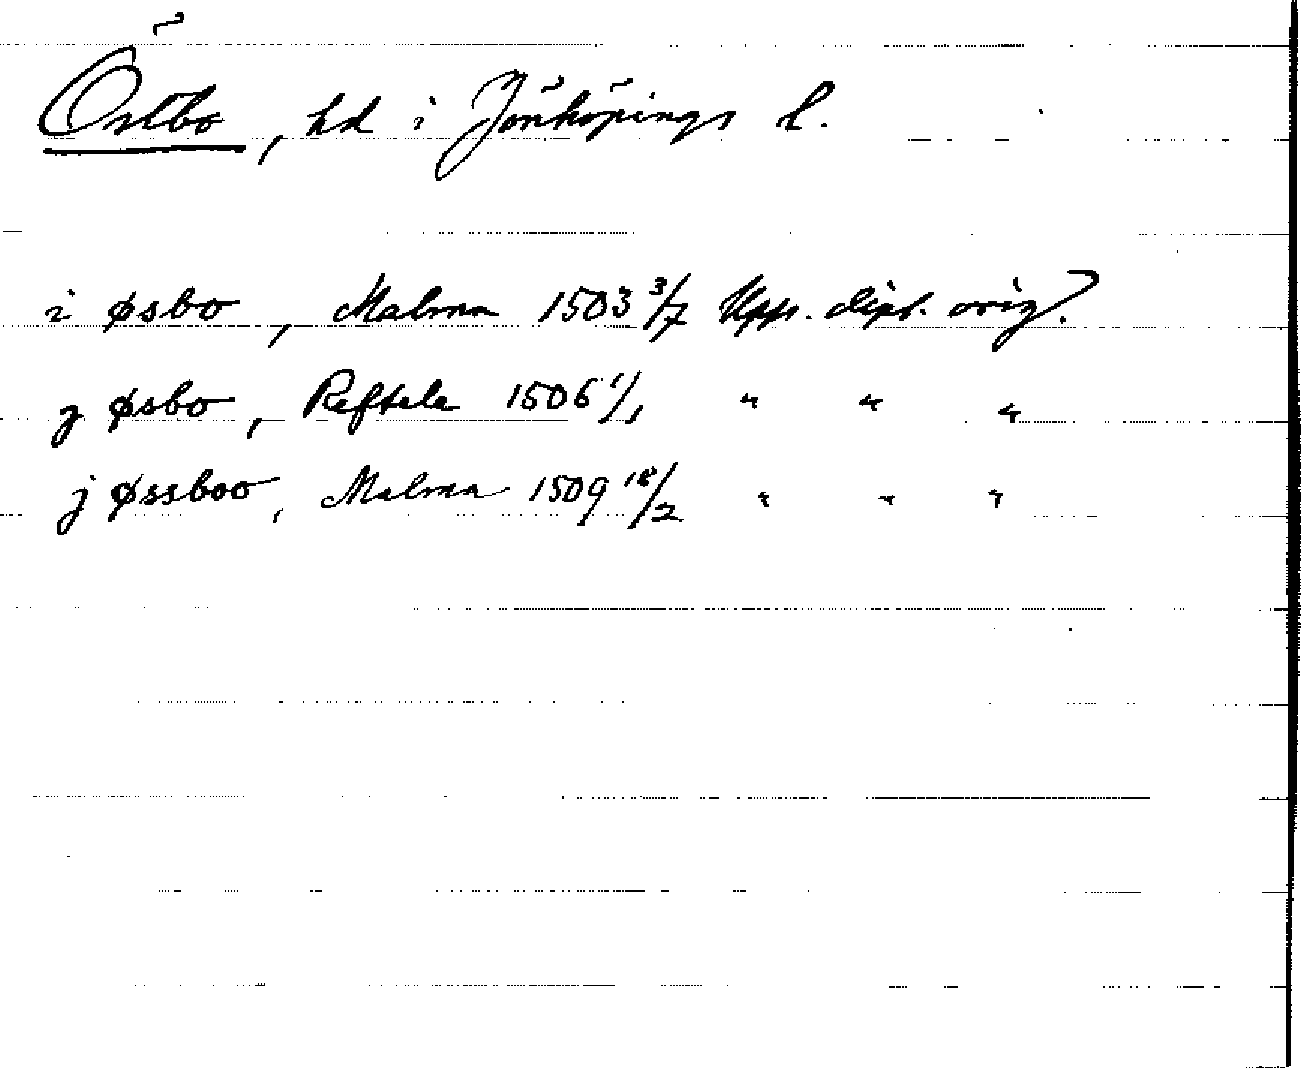 Östbo, hd i Jönköpings l.
i øsbo, Malmæ 1503 3/7 Upps. dipl. orig?
j øsbo, Reftele 1506 1/1 " " "
j øssboo, Malmæ 1509 18/2 " " "